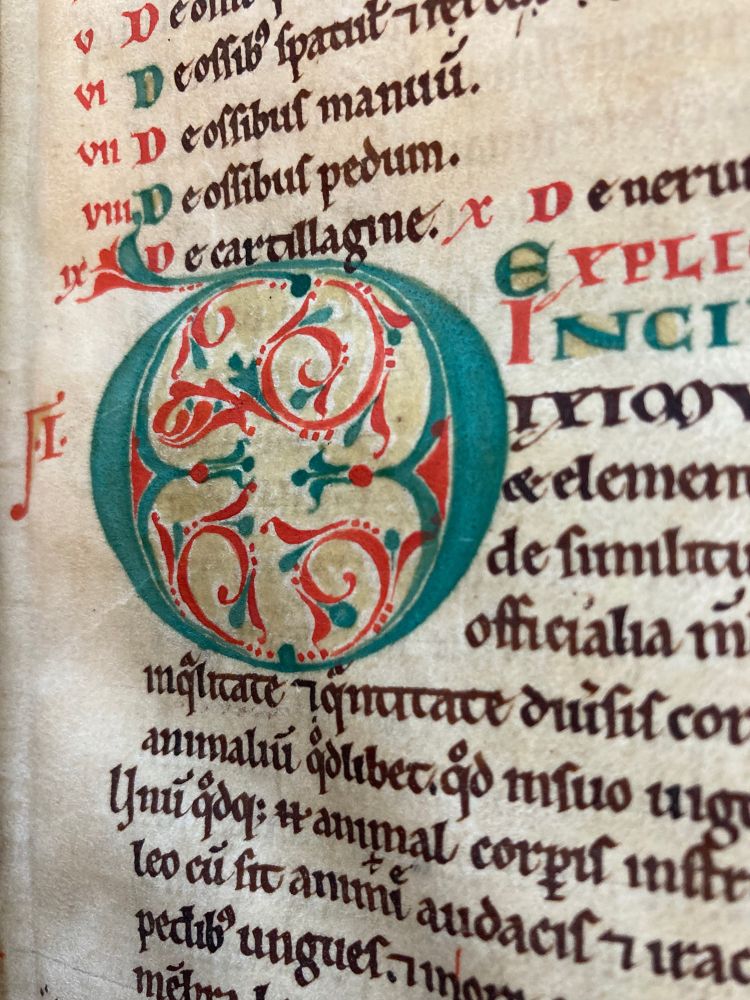 v De ossib
vi De ossibꝰ spatul̄ ⁊
vii De ossibus manuū.
viii De ossibus pedum.
ix De cartillagine. x De neru
EXPLI
INCI
DIXIMV
& elemen
de similitu
officialia m̄
inq̄litate ⁊ q̄ntitate diuisis cor
animaliū qͦdlibet. qͦd insuo ungu
Vnū qͦdq; animal corꝑis instr
leo cū sit animi audacis ⁊ irac
pedibꝰ ungues. ⁊ inore
mēbra
F.I.